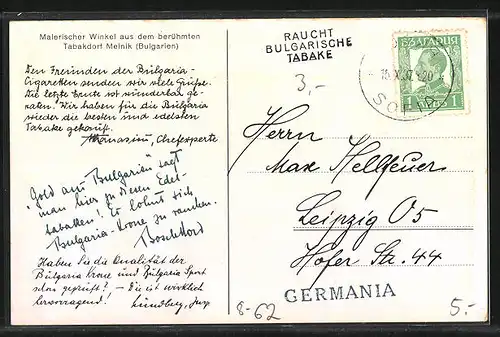 Malerischer Winkel aus dem berühmten
Tabakdorf Melnik (Bulgarien)
Den Freunden der Bulgaria-
Cigaretten senden wir viele Grüße.
Die letzte Ernte ist wunderbar ge-
raten. Wir haben für die Bulgaria
wieder die besten und edelsten
Tabake gekauft.
Chefexperte
"Gold aus Bulgarien" sagt
man hier zu diesen Edel-
tabaken! Es lohnt sich
Bulgaria-Krone zu rauchen.
Haben Sie die Qualität der
Bulgaria Krone und Bulgaria Sport
schon geprüft? – Die ist wirklich
hervorragend!
RAUCHT
BULGARISCHE
TABAKE
3,-
БЪЛГАРИЯ
1 1
Herrn
Max Hellfeuer
Leipzig O5
Hofer Str. 44
GERMANIA
8-62
5.-